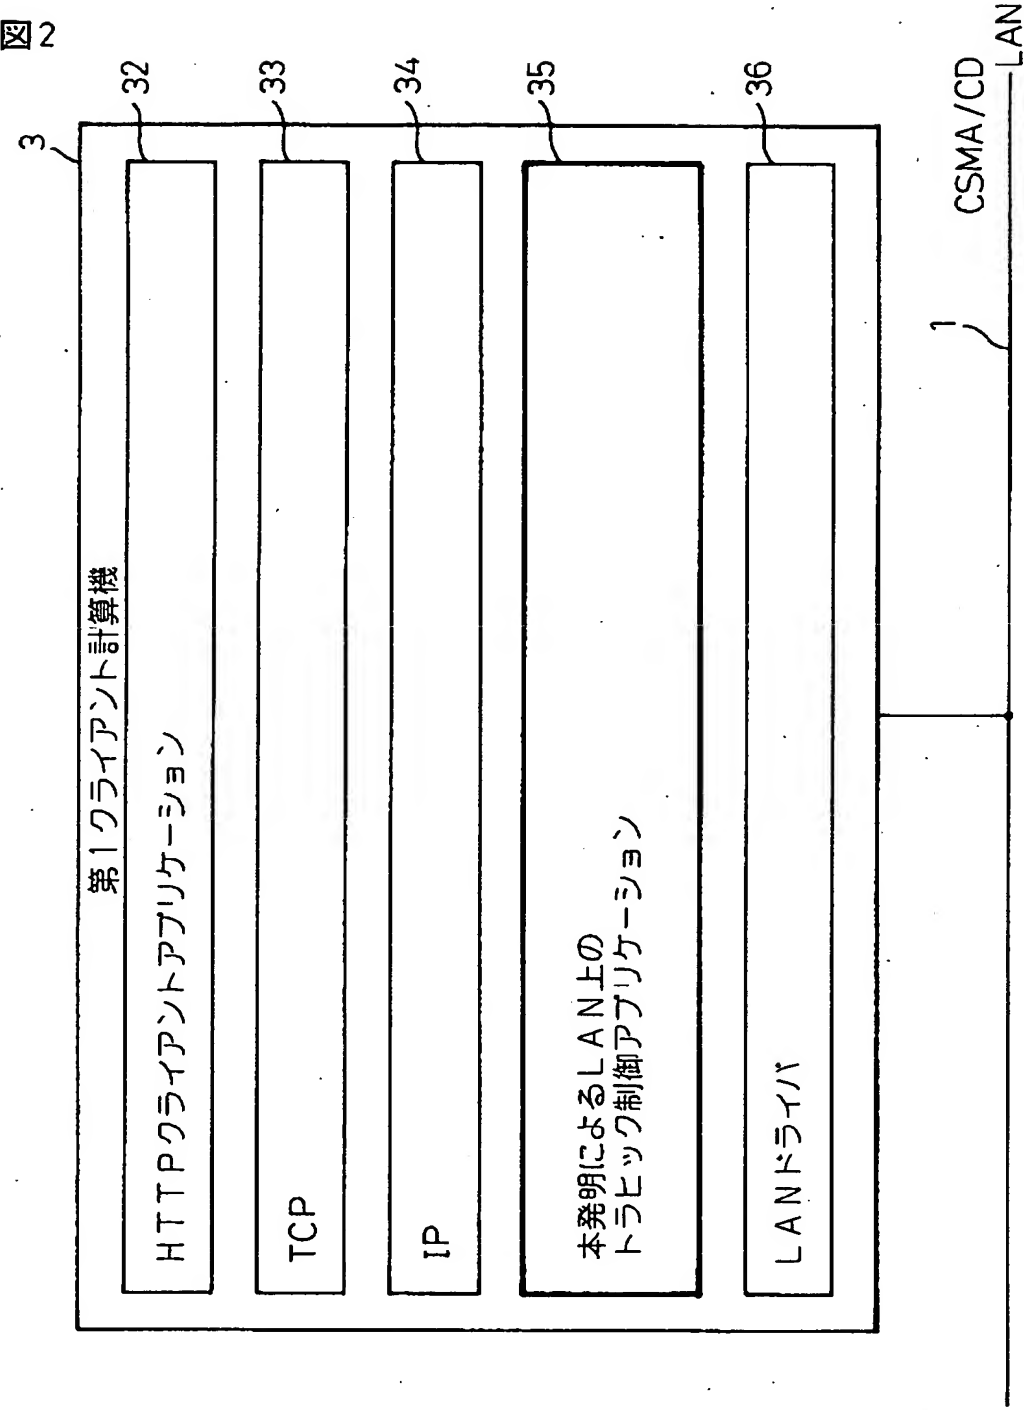 図2
3
第1クライアント計算機
32
HTTPクライアントアプリケーション
33
TCP
34
IP
35
本発明によるLAN上の
トラヒック制御アプリケーション
36
LANドライバ
CSMA/CD
1
LAN